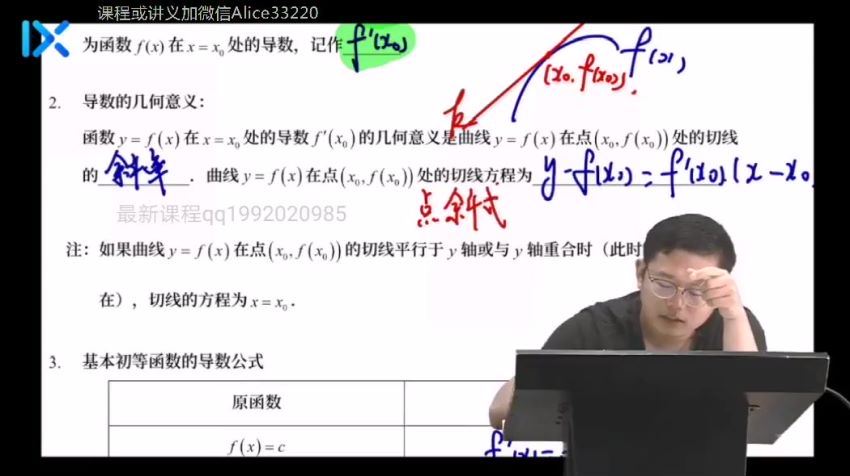 课程或讲义加微信Alice33220
为函数 f(x) 在 x = x₀ 处的导数，记作 f'(x₀)
f(x)
(x₀, f(x₀))
2. 导数的几何意义：
k
函数 y = f(x) 在 x = x₀ 处的导数 f'(x₀) 的几何意义是曲线 y = f(x) 在点(x₀, f(x₀)) 处的切线
的 斜率 ．曲线 y = f(x) 在点(x₀, f(x₀)) 处的切线方程为 y - f(x₀) = f'(x₀)(x - x₀
最新课程qq1992020985
点斜式
注：如果曲线 y = f(x) 在点(x₀, f(x₀)) 的切线平行于 y 轴或与 y 轴重合时（此时
在），切线的方程为 x = x₀．
3. 基本初等函数的导数公式
原函数
f(x) = c
f'(x) =